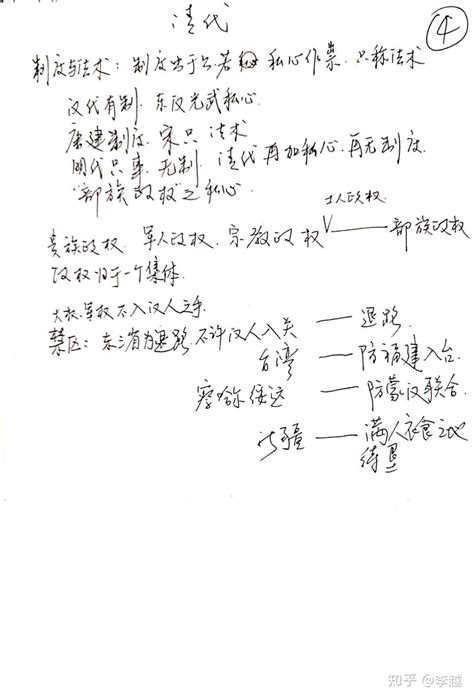 清代
④
制度与法术：制度出于公 若 私心作祟，只称法术
汉代有制，东汉光武私心
唐建制度，宋只法术
明代只事，无制，清代再加私心，再无制度
"部族政权"之私心
士人政权
贵族政权 军人政权 宗教政权 V —— 部族政权
政权归于一个集体
大权军权不入汉人之手
禁区：东三省为退路，不许汉人入关 —— 退路
台湾 —— 防福建入台
察哈尔绥远 —— 防蒙汉联合
新疆 —— 满人衣食之地
待垦
知乎 @李越